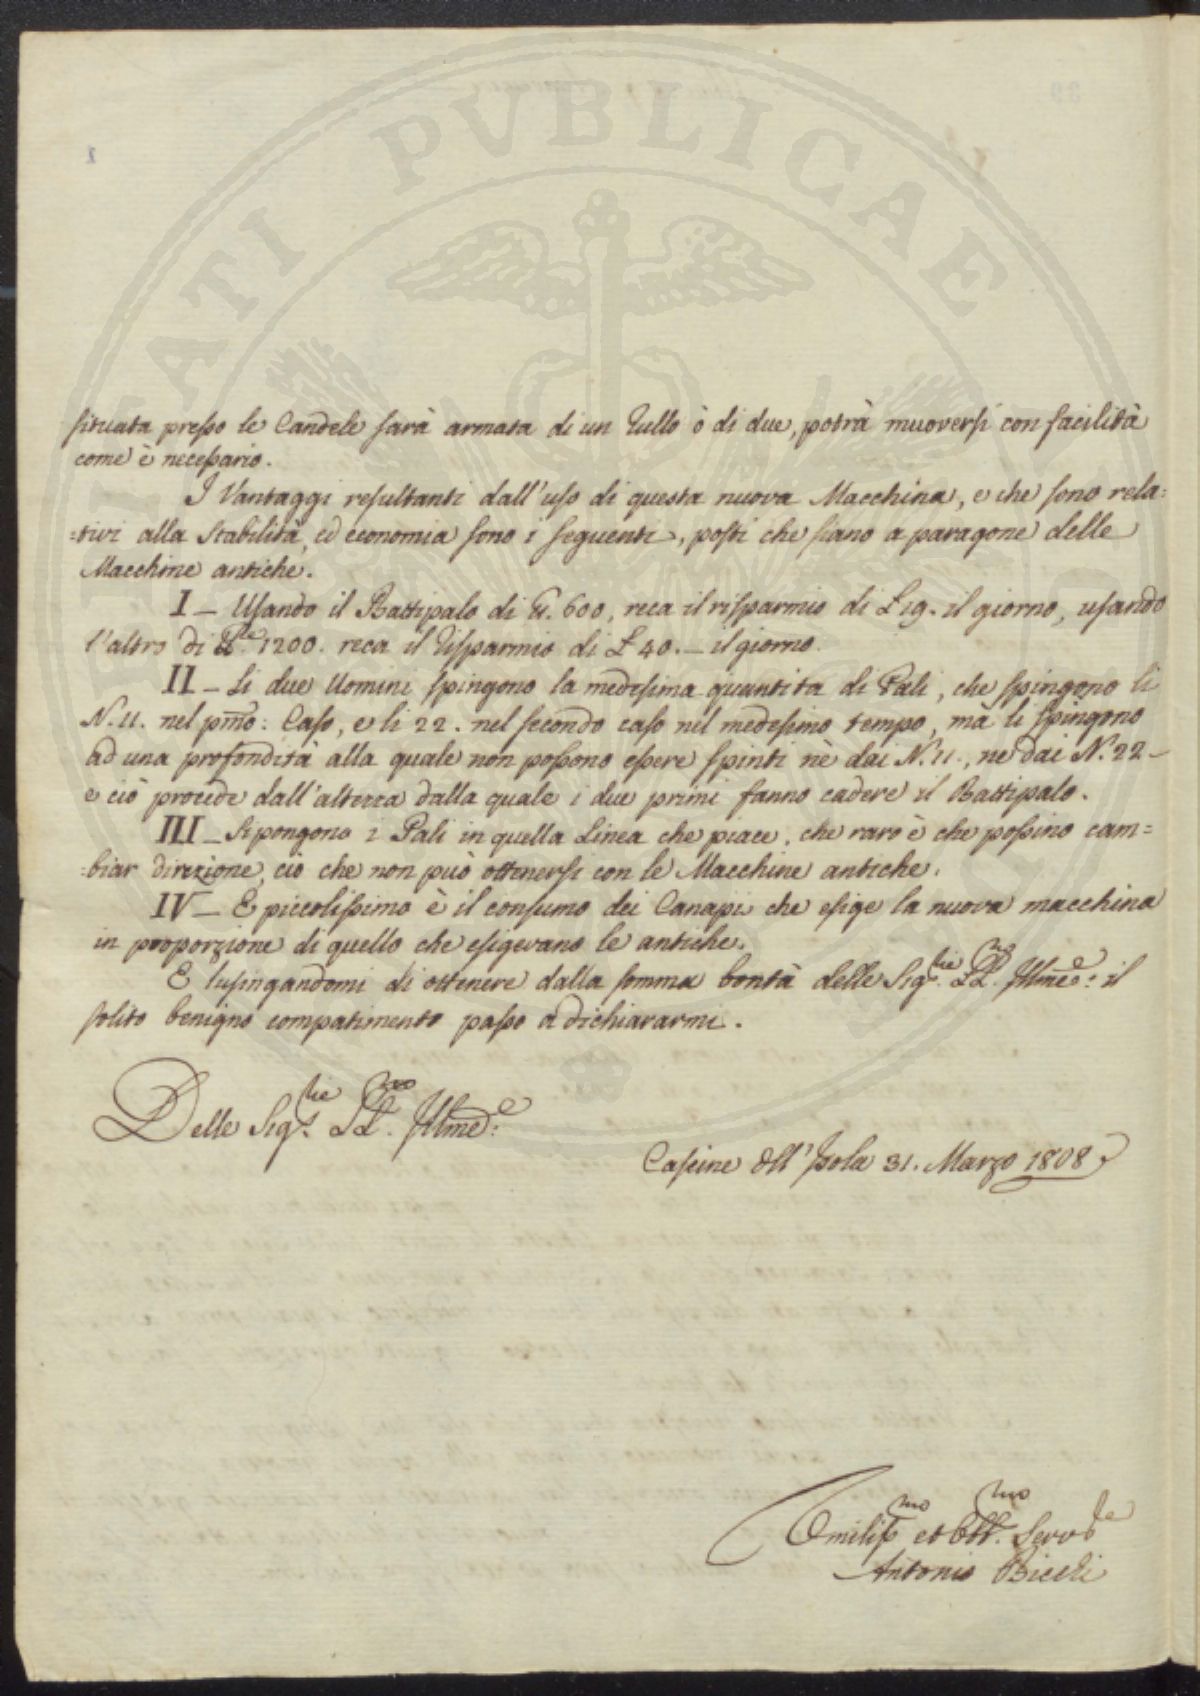 PUBLICAE
situata presso le Candele sarà armata di un Rullo ò di due, potrà muoversi con facilità
come è necessario.
I Vantaggi resultanti dall'uso di questa nuova Macchina, e che sono rela=
=tivi alla Stabilità, ed economia sono i seguenti, posti che siano a paragone delle
Macchine antiche.
I — Usando il Battipalo di 600, reca il risparmio di il giorno, usando
l'altro di 1200. reca il risparmio di £ 40. — il giorno.
II — Li due Uomini spingono la medesima quantità di Pali, che spingono li
N. 11. nel pmo: Caso, e li 22. nel secondo caso nel medesimo tempo, ma li spingono
ad una profondità alla quale non possono essere spinti nè dai N. 11., ne dai N. 22 —
e ciò procede dall'altezza dalla quale i due primi fanno cadere il Battipalo.
III — Si pongono i Pali in quella Linea che piace, che raro è che possino cam=
=biar direzione, ciò che non può ottenersi con le Macchine antiche.
IV — E piccolissimo è il consumo dei Canapi che esige la nuova macchina
in proporzione di quello che esigevano le antiche.
E lusingandomi di ottenere dalla somma bontà delle Sig.rie LL. Illme: il
solito benigno compatimento passo a dichiararmi.
Delle Sig.rie LL. Illme:
Cascine dell'Isola 31. Marzo 1808.
Umiliss.mo et Obb.mo Serv.re
Antonio Bicchi